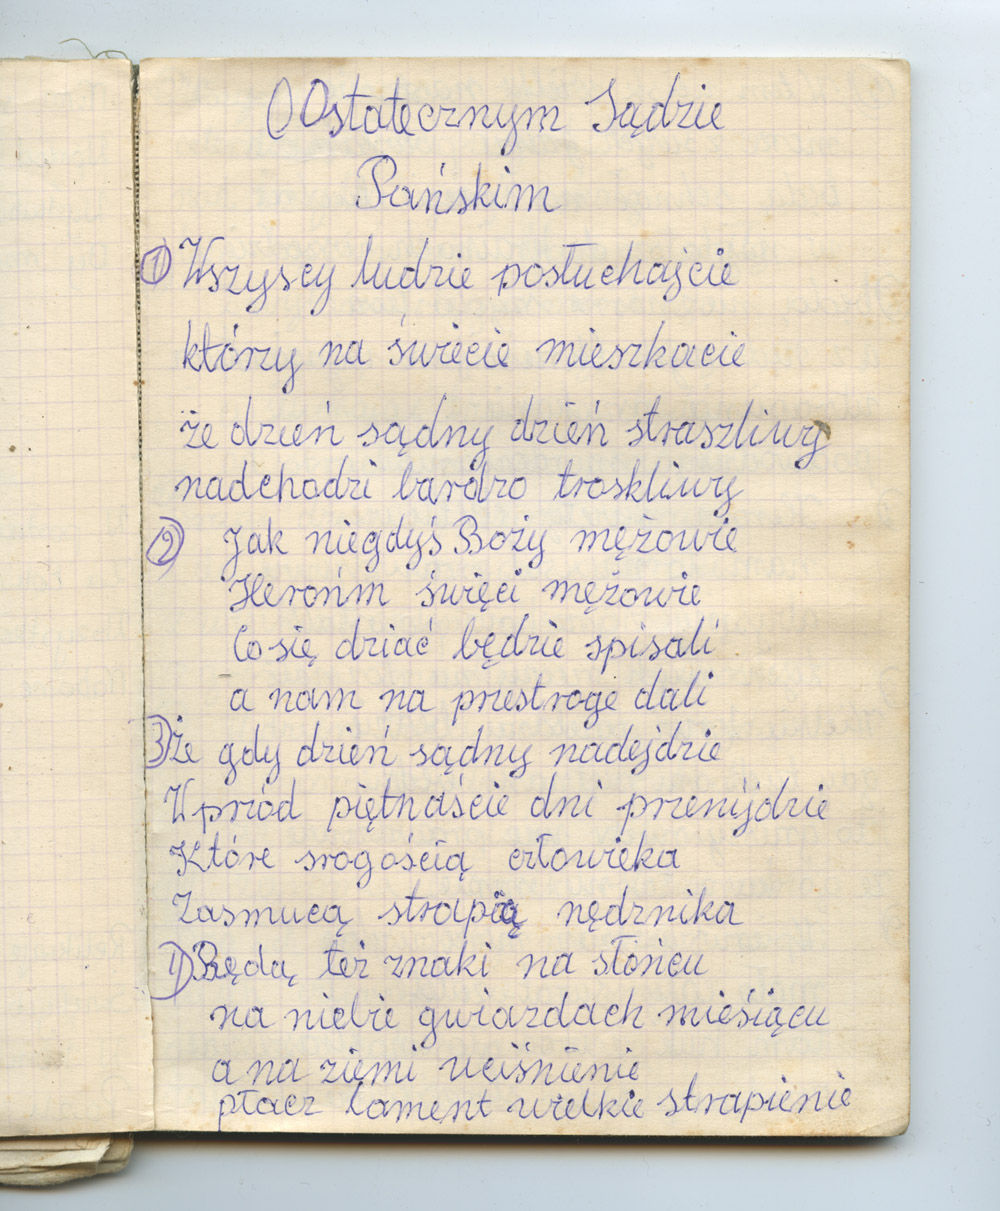 O Ostatecznym Sądzie
Pańskim
① Wszyscy ludzie posłuchajcie
którzy na świecie mieszkacie
że dzień sądny dzień straszliwy
nadchodzi bardzo troskliwy
② Jak niegdyś Boży mężowie
Herońm święci mężowie
Co się dziać będzie spisali
a nam na przestrogę dali
3) Że gdy dzień sądny nadejdzie
Wprzód piętnaście dni przenijdzie
Które srogością człowieka
Zasmucą strapią nędznika
4) Będą też znaki na słońcu
na niebie gwiazdach miesiącu
a na ziemi uciśnienie
płacz lament wielkie strapienie